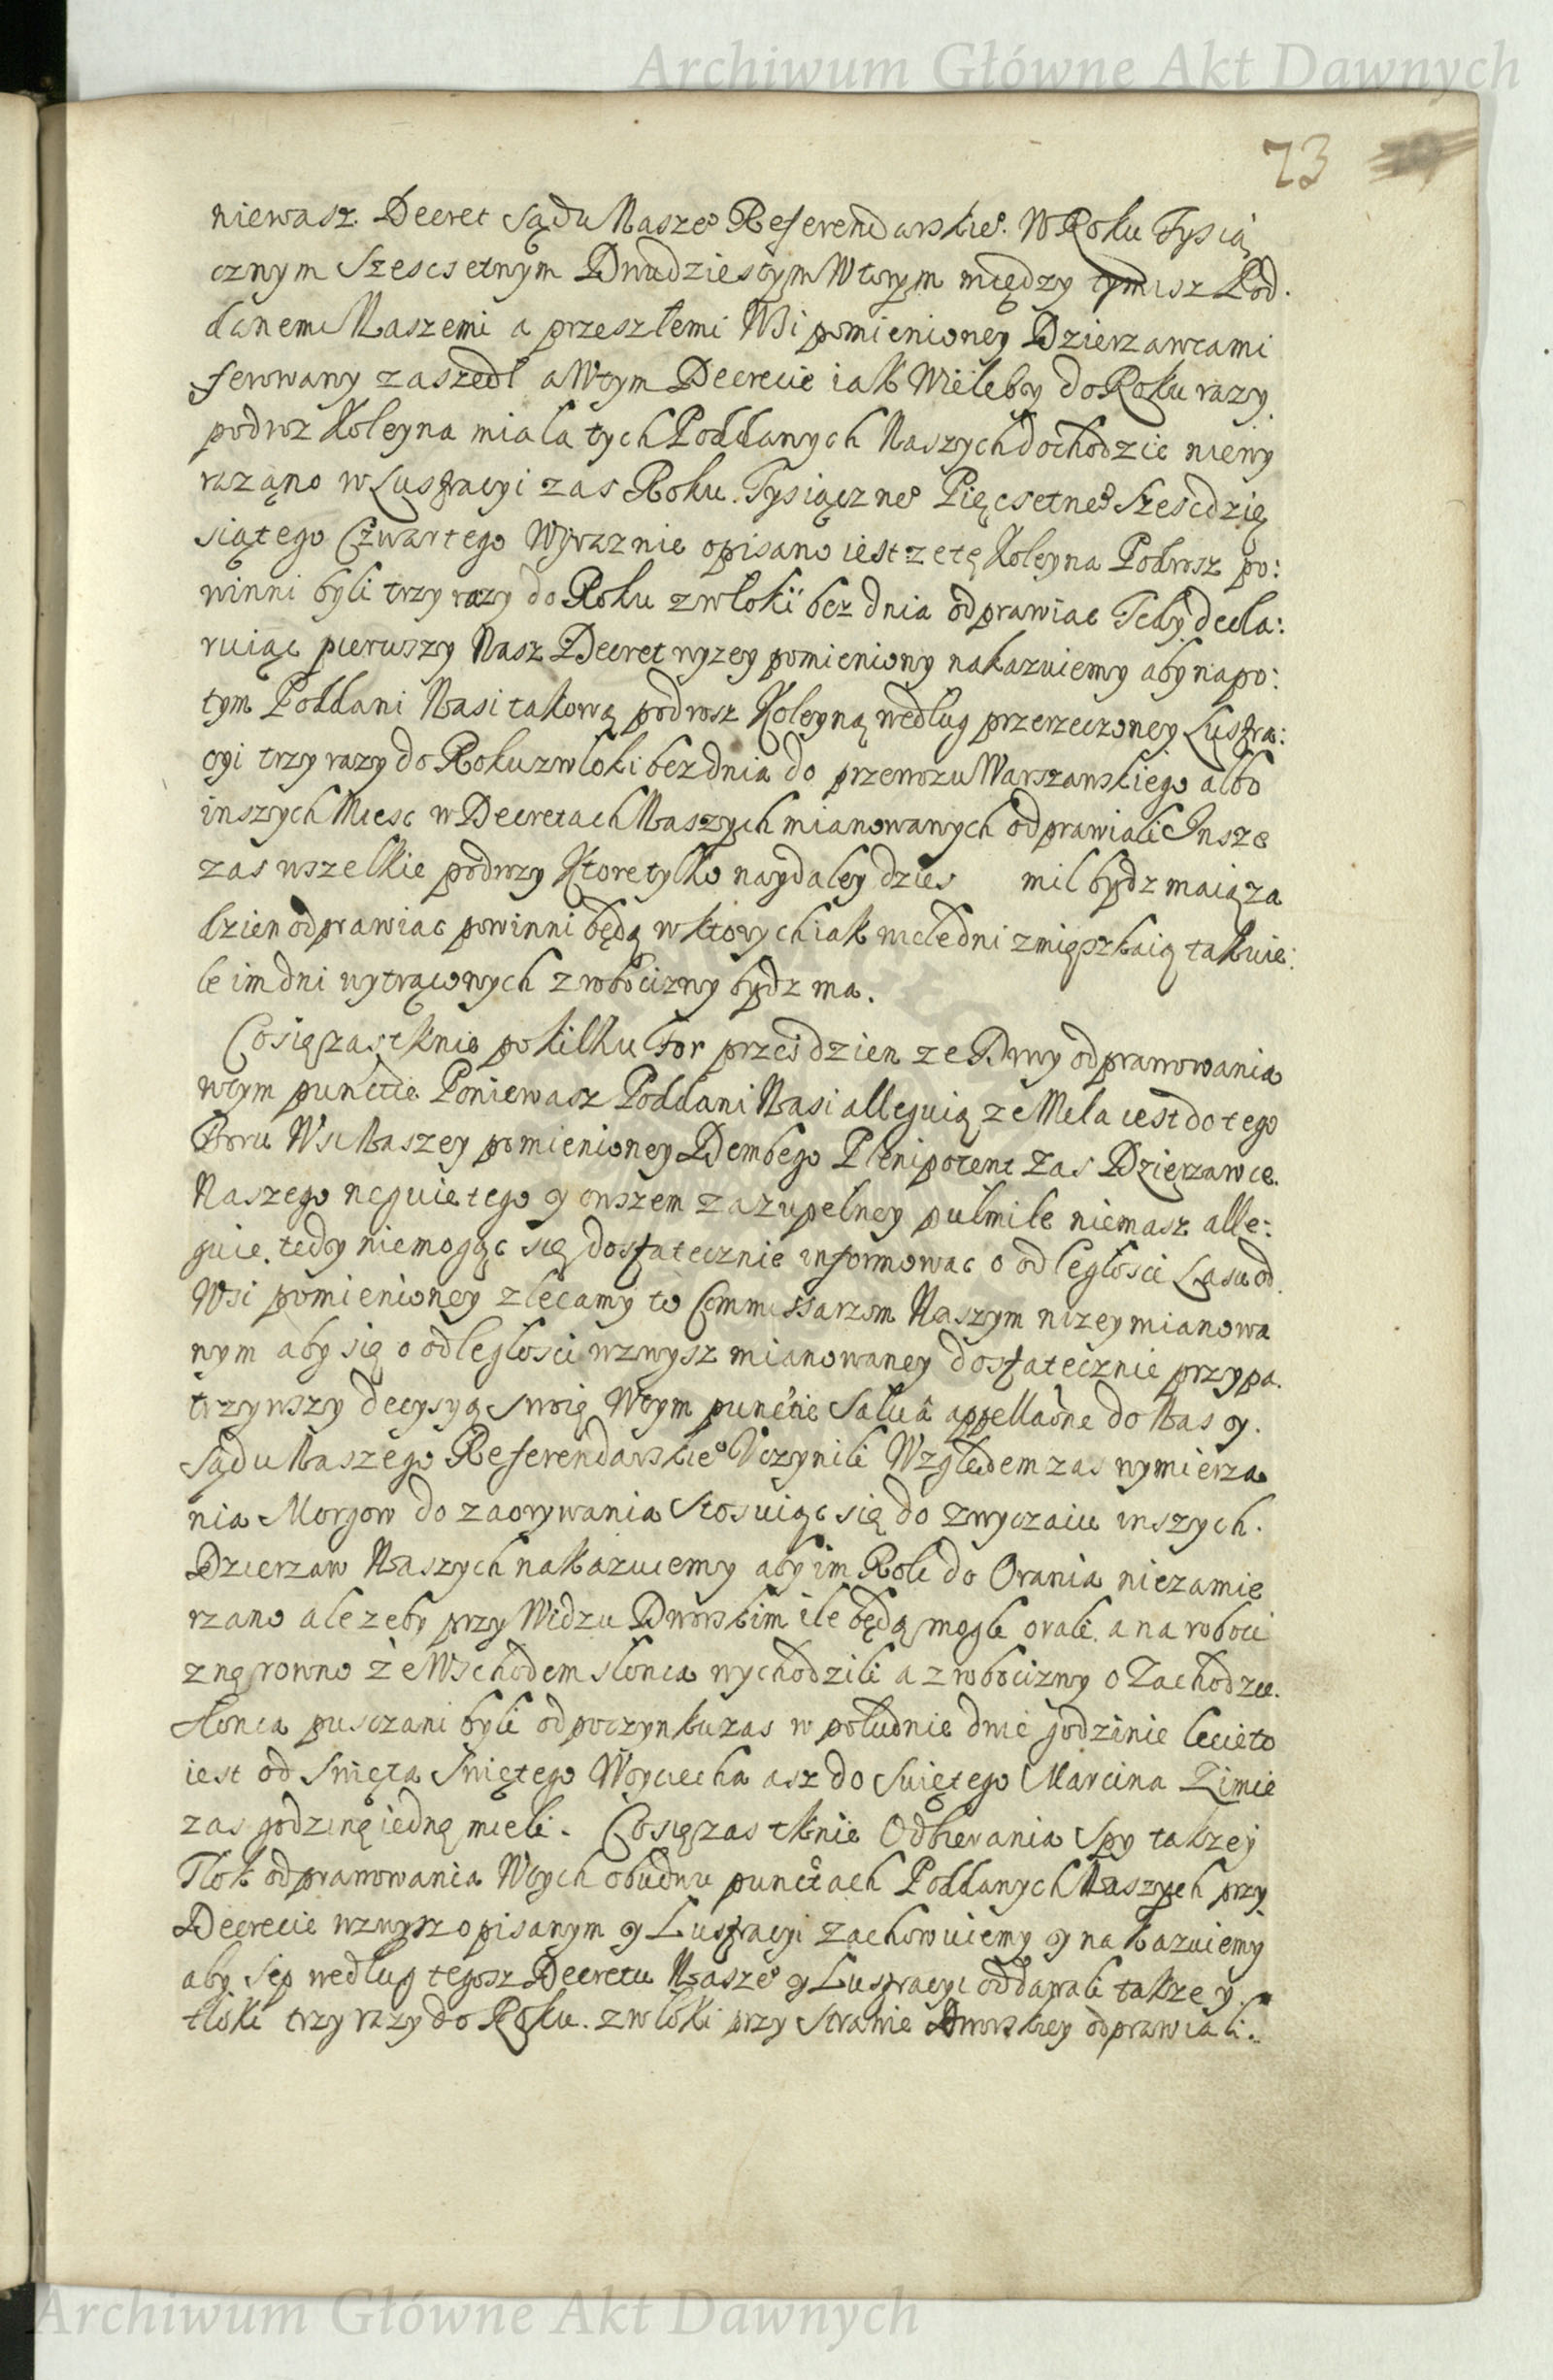 Archiwum Główne Akt Dawnych
73
niewasz Decret Sądu Naszeº Referendarskieº W Roku Tysią
cznym Szescsetnym Dwudziestym Wtorym między tymisz Pod
danemi Naszemi a przeszłemi Wsi pomienioney Dzierzawcami
ferowany zaszedł a Wtym Decrecie iak Wieleby do Roku razy
podroz Koleyna miala tych Poddanych Naszych dochodzic niewy
raząno w Lustracyi zas Roku Tysiączneº Pięcsetneº Szescdzię
siątego Czwartego Wyraznie opisano iest ze tę Koleyna Podrosz po:
winni byli trzy razy do Roku z włoki bez dnia odprawiac Tedy decla:
ruiąc pierwszy Nasz Decret wyzey pomieniony nakazuiemy aby napo:
tym Poddani Nasi takową podrosz Koleyną według przerzeczoney Lustra:
cyi trzy razy do Roku z wloki bez dnia do przewozu Warszawskiego albo
inszych Miesc w Decretach Naszych mianowanych odprawiali Insze
zas wszelkie podrozy Ktore tylko naydaley dzies mil bydz maią za
dzien odprawiac powinni będą w ktorych iak wiele dni zmięszkaią tak wie:
le im dni wytrąconych z robocizny bydz ma.
Co się zas tknie po kilku For przes dzien ze Drwy odprawowania
wtym punctie Poniewasz Poddani Nasi alleguią ze Mela iest do tego
Boru Wsi Naszey pomienioney Dembego Plenipotent zas Dzierzawce
Naszego neguie tego y owszem za zupelney pulmile niemasz alle:
guie, tedy niemogąc się dostatecznie informowac o odległosci Lasu od
Wsi pomienioney zlecamy to Commissarzom Naszym nizey mianowa
nym aby się o odległosci wzwysz mianowaney dostatecznie przypa
trzywszy decysyą swoię Wtym punctie salua appellaône do Nas y
Sądu Naszego Referendarskieº Uczynili Względem zas wymierza
nia Morgow do zaorywania Stosuiąc się do zwyczaiu inszych
Dzierzaw Naszych nakazuiemy aby im Roli do Orania niezamie
rzano ale zeby przy Widzu Dworskim ile będą mogli orali a na roboci
znę rowno ze Wschodem slonca wychodzili a z robocizny o Zachodzie
slonca pusczani byli odpoczynku zas w południe dwie godzinie lecie to
iest od Swięta Swiętego Woyciecha asz do Swiętego Marcina Zimie
zas godzinę iednę mieli. Co się zas tknie Odbierania Spy takze y
Tłok odprawowania Wtych obudwu punctach Poddanych Naszych przy
Decrecie wzwysz opisanym y Lustracyi zachowuiemy y nakazuiemy
aby Sep według tegosz Decretu Naszeº y Lustracyi oddawali takze y
tłoki trzy razy do Roku z włoki przy Strawie Dworskiey odprawiali.
Archiwum Główne Akt Dawnych